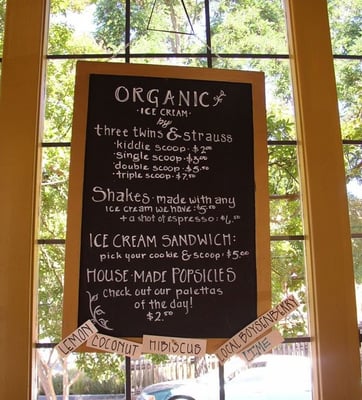 ORGANIC
·ICE CREAM·
by
three twins & strauss
·kiddie scoop·$2.00
·single scoop·$3.00
·double scoop·$5.00
·triple scoop·$7.00
Shakes·made with any
ice cream we have:$5.00
+ a shot of espresso:$6.00
ICE CREAM SANDWICH:
pick your cookie & scoop:$5.00
HOUSE·MADE POPSICLES
check out our palettas
of the day!
$2.00
LEMON
COCONUT
HIBISCUS
LOCAL BOYSENBERRY
LIME